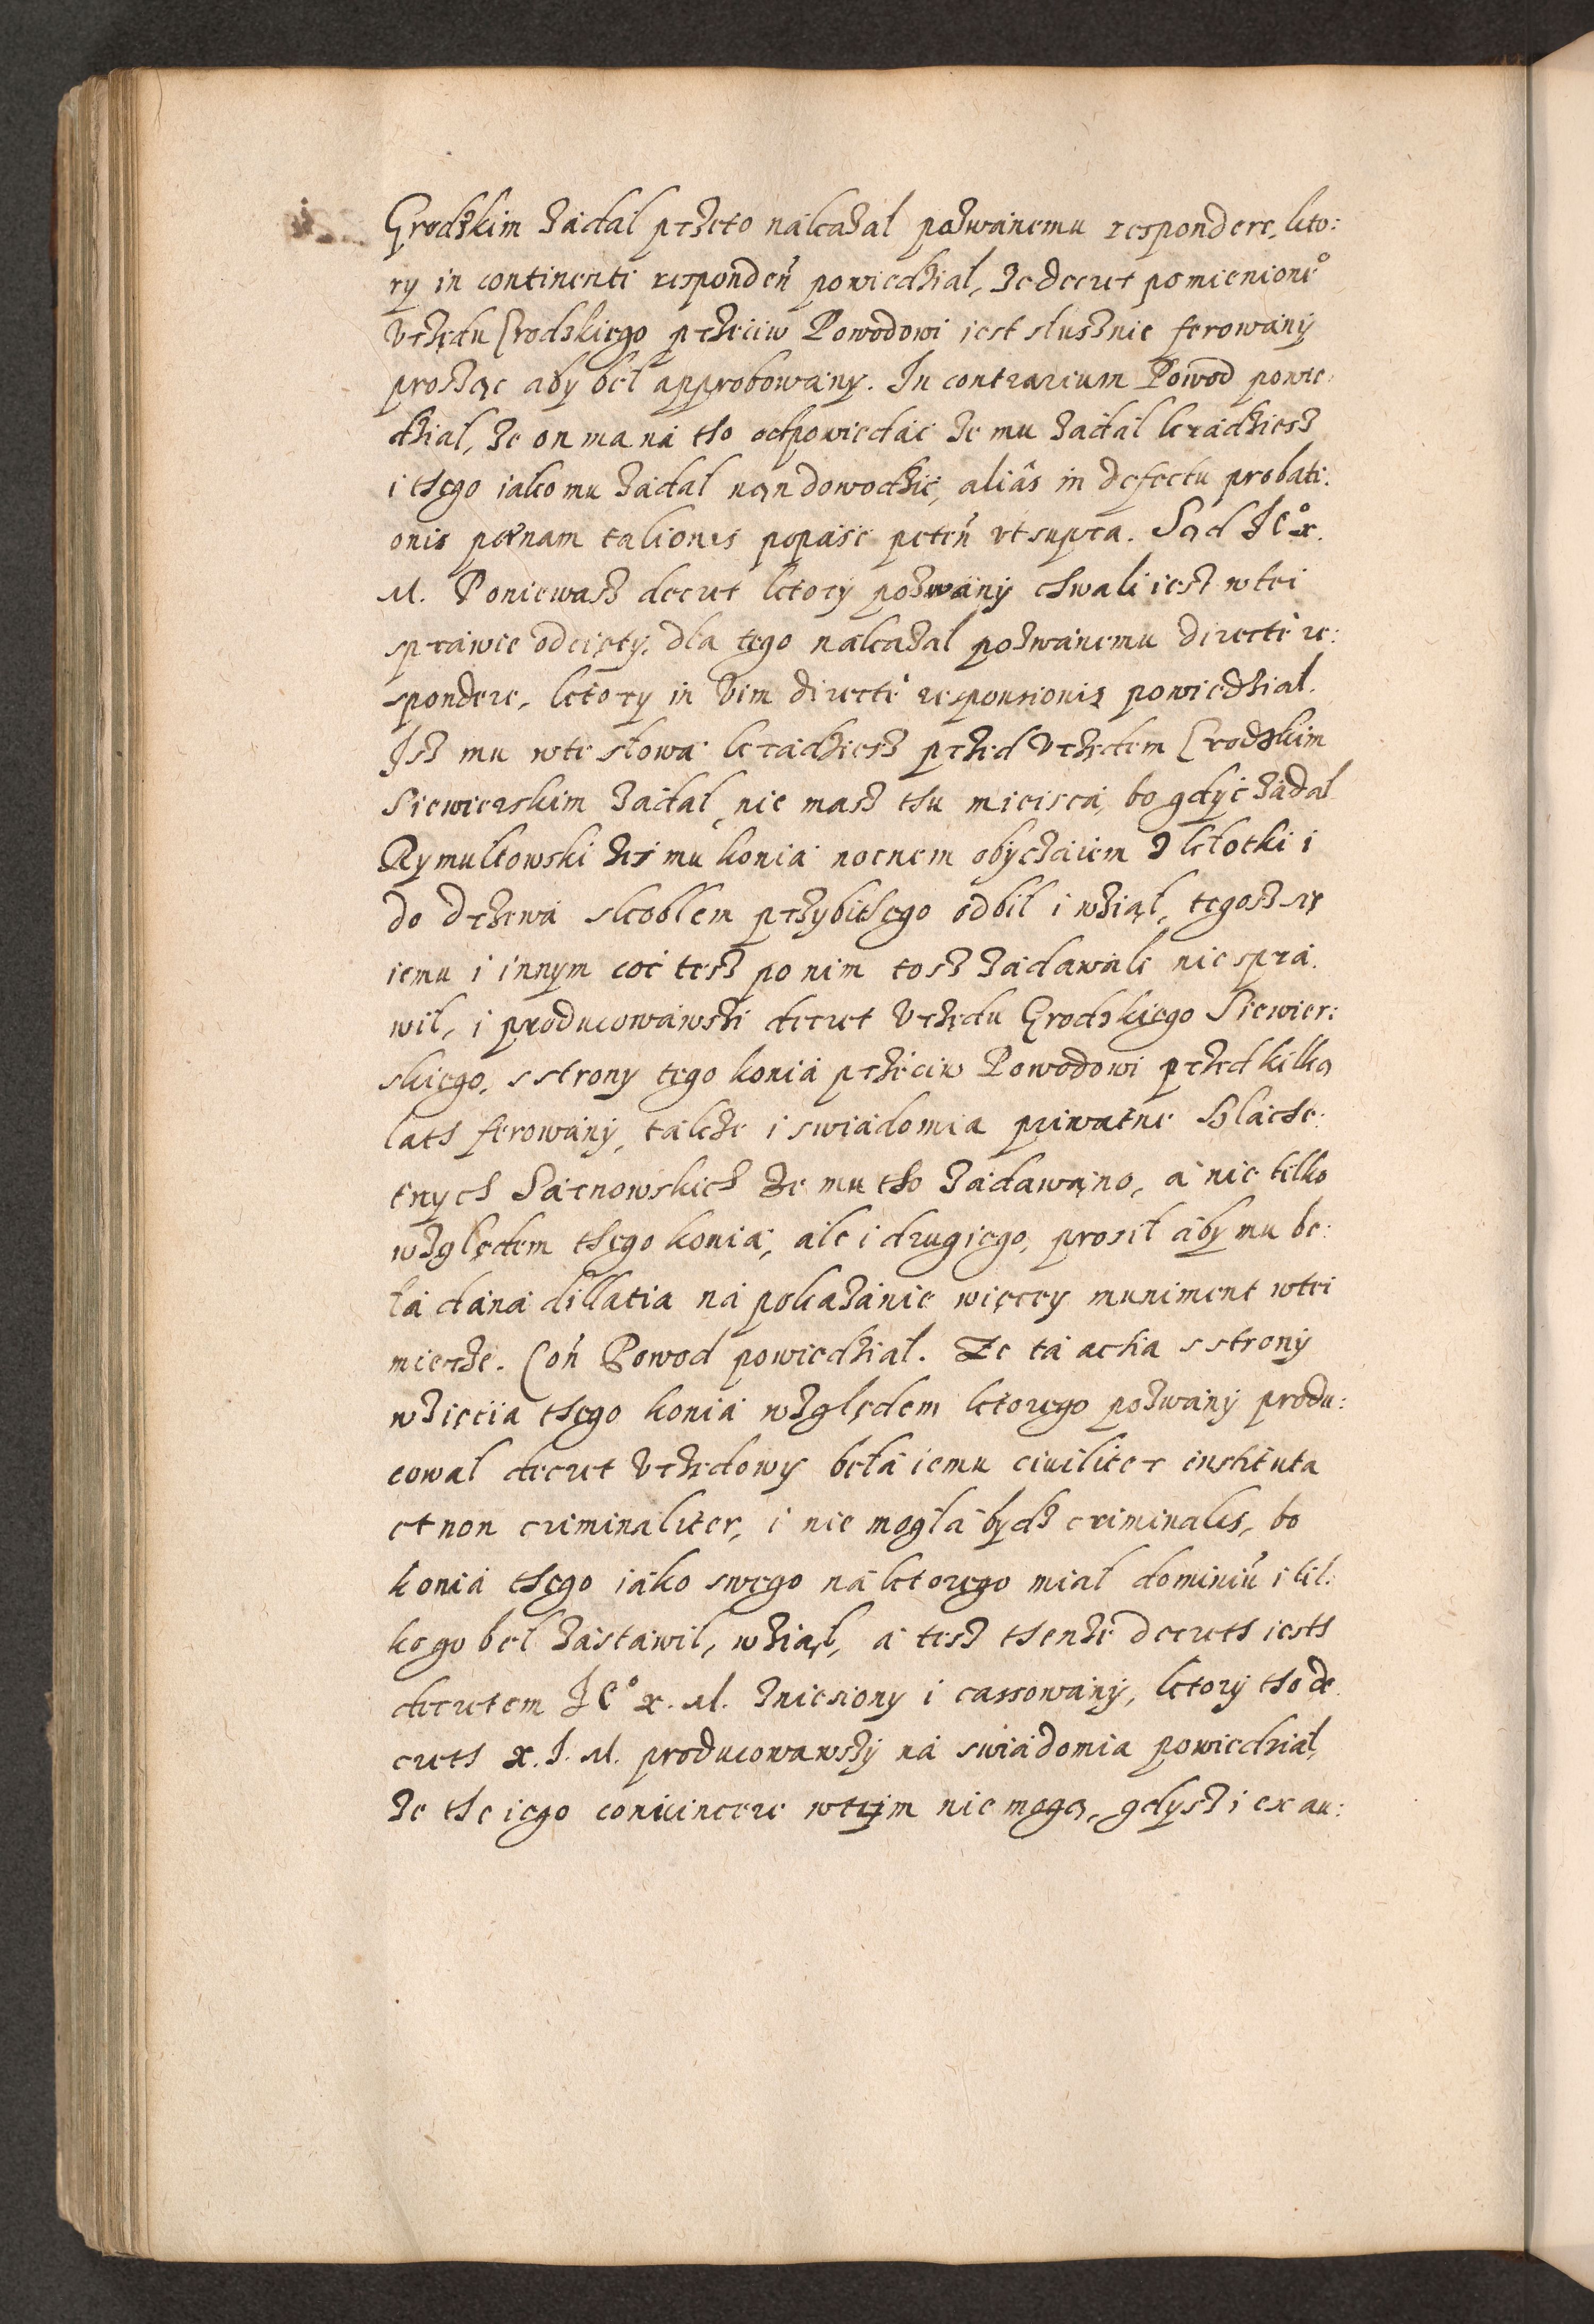 Grodzkim zádał przeto nákazał pozwánemu respondere, kto:
ry in continenti responden̄ powiedział, że decret pomienione°
Vrzędu Grodzkiego przeciw Powodowi iest słusznie ferowány
prosząc aby beł approbowány. In contrarium Powod powie:
dział, że on ma ná tho odpowiedác że mu zádał kradziesz
i thego iako mu zádał nań dowodzić, aliâs in defectu probati:
onis poenam talionis popáść peten̄ vt supra. Sąd Je° x.
M. Poniewasz decret ktory pozwány chwali iesz w tei
spráwie odcięty, dla tego nákazał pozwánemu directè re:
spondere, ktory in vim directè responsionis powiedział.
Isz mu w te słowá kradziesz przed Vrzędem Grodzkim
Siewierskim zádał, nie masz thu mieiscá, bo gdyć zádał
Rymułtowski żeś mu koniá nocnem obyczáiem z kłotki i
do drzewá skoblem przybithego odbił i wziął, tegosz się
iemu i innym coć tesz po nim tosz zádawáli nie sprá:
wił, i producowáwszi decret Vrzędu Grodzkiego Siewier:
skiego, s strony tego koniá przeciw Powodowi przed kilką
lath ferowány, tákże i swiádomia priwatne Szláche:
tnych Sarnowskich że mu tho zádawano, á nie tilko
względem thego koniá, ale i drugiego, prosił áby mu be:
łá dáná dillatia ná pokazánie więcey muniment w tei
mierze. Con̄ Powod powiedział. Że tá actia s strony
wzięcia thego koniá względem ktorego pozwány produ:
cował decret Vrzędowy bełá iemu ciuiliter instituta
et non criminaliter, i nie mogłá bydź criminalis, bo
koniá thego iáko swego ná ktorego miał dominiū i kil:
kogo beł zástawił, wziął, á tesz thenże decreth iesth
decretem Je° x. M. zniesiony i cassowány, ktory tho de:
creth x. J. M. producowawszy ná swiádomia powiedział,
że the iego conuincere w tym nie mogą, gdysz i ex au: